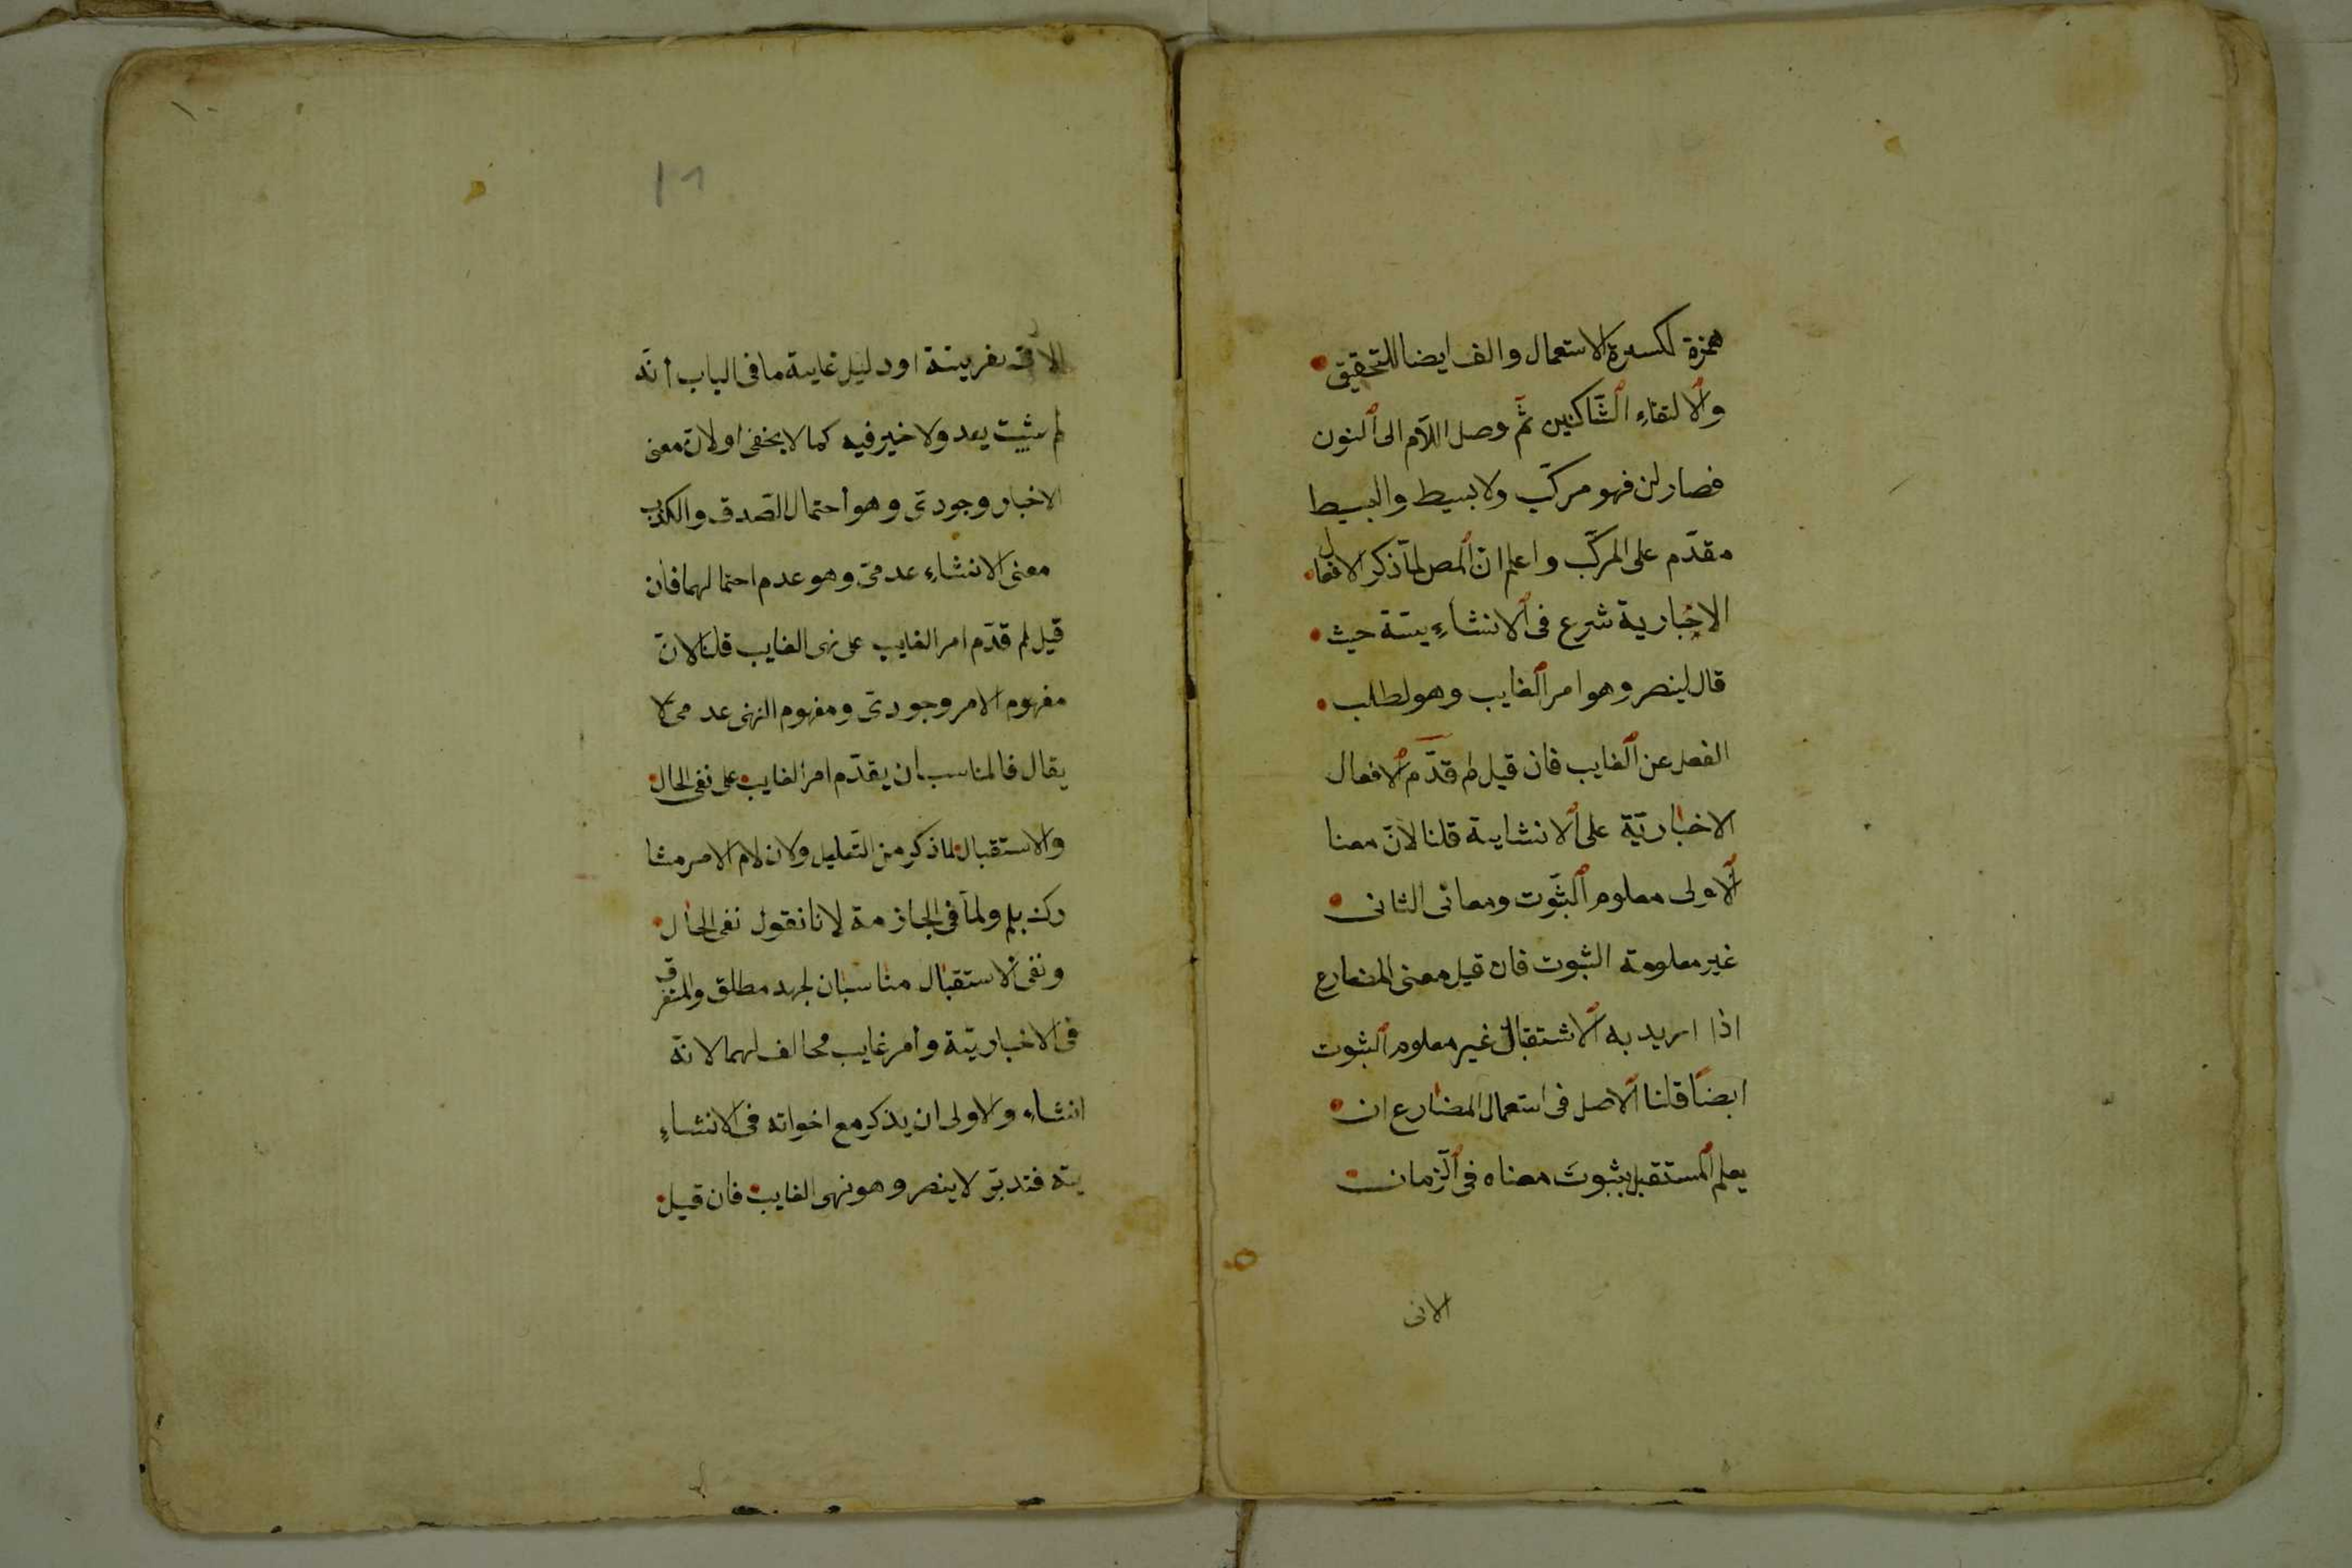 همزة لكسرة الاستعمال والف ايضا للتحقيق
والالتقاءِ السّاكنين ثمّ وصل اللاّم الى النون
فصار لن فهو مركّب ولا بسيط والبسيط
مقدّم على المركّب واعلم انّ المص لمّا ذكر الافعال
الاخبارية شرع فى الانشاءِيتة حيث
قال لينصر وهو امر الغايب وهو لطلب
الفعل عن الغايب فان قيل لم قدّم الافعال
الاخباريّة على الانشاية قلنا لانّ معنا
الاولى معلوم الثّبوت ومعانى الثانى
غير معلومة الثبوت فان قيل معنى المضارع
اذا اريد به الاستقبال غير معلوم الثبوت
ايضًا قلنا الاصل فى استعمال المضارع ان
يعلم المستقبل بثبوت معناه فى الزّمان
الاتى
الاتى بقرينة او دليل غاية ما فى الباب أنّه
لم يثبت بعد ولا خير فيه كما لا يخفى او لانّ معنى
الاخبار وجودىّ وهو أحتمال الصّدق والكذب
معنى الانشاءِ عدمىّ وهو عدم احتمالهما فان
قيل لم قدّم امر الغايب على نهى الغايب قلنا لانّ
مفهوم الامر وجودىّ ومفهوم النهى عدمى لا
يقال فالمناسب أن يقدّم امر الغايب على نفى الحال
والاستقبال لما ذكر من التّعليل ولان لام الامر مشا
رك بلم ولمّا فى الجازمة لانا نقول نفى الحال
ونفى الاستقبال مناسبان لجهد مطلق والمتفرق
فى الاخباريّة وأمر غايب مخالف لهما لانّه
انشاء والاولى ان يذكر مع اخواته فى الانشاءِ
يتة فتدبّر لا ينصر وهو نهى الغايب فان قيل